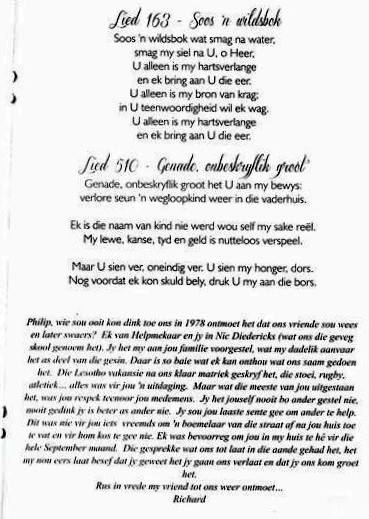 Lied 163 - Soos 'n wildsbok
Soos 'n wildsbok wat smag na water,
smag my siel na U, o Heer,
U alleen is my hartsverlange
en ek bring aan U die eer.
U alleen is my bron van krag;
in U teenwoordigheid wil ek wag.
U alleen is my hartsverlange
en ek bring aan U die eer.
Lied 510 - Genade, onbeskryflik groot'
Genade, onbeskryflik groot het U aan my bewys:
verlore seun 'n wegloopkind weer in die vaderhuis.
Ek is die naam van kind nie werd wou self my sake reël.
My lewe, kanse, tyd en geld is nutteloos verspeel.
Maar U sien ver, oneindig ver. U sien my honger, dors.
Nog voordat ek kon skuld bely, druk U my aan die bors.
Philip, wie sou ooit kon dink toe ons in 1978 ontmoet het dat ons vriende sou wees
en later swaers? Ek van Helpmekaar en jy in Nic Diedericks (wat ons die geveg
skool genoem het). Jy het my aan jou familie voorgestel, wat my dadelik aanvaar
het as deel van die gesin. Daar is so baie wat ek kan onthou wat ons saam gedoen
het. Die Lesotho vakansie na ons klaar matriek geskryf het, die stoei, rugby,
atletiek... alles was vir jou 'n uitdaging. Maar wat die meeste van jou uitgestaan
het, was jou respek teenoor jou medemens. Jy het jouself nooit bo ander gestel nie,
nooit gedink jy is beter as ander nie. Jy sou jou laaste sente gee om ander te help.
Dit was nie vir jou iets vreemds om 'n boemelaar van die straat af na jou huis toe
te vat en vir hom kos te gee nie. Ek was bevoorreg om jou in my huis te hê vir die
hele September maand. Die gesprekke wat ons tot laat in die aande gehad het, het
my nou eers laat besef dat jy geweet het jy gaan ons verlaat en dat jy ons kom groet
het.
Rus in vrede my vriend tot ons weer ontmoet...
Richard